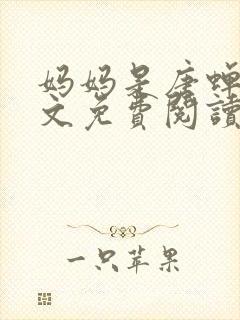 妈妈是唐蟬
文免費閱讀
一只苹果